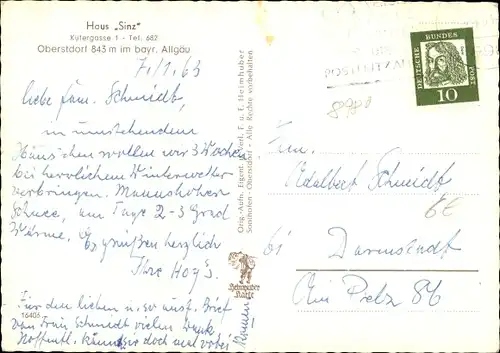 Haus „Sinz“
Kutergasse 1 - Tel. 682
Oberstdorf 843 m im bayr. Allgäu
7./1.63
Liebe Fam. Schmidt,
in umstehendem
Häuschen wollen wir 3 Wochen
bei herrlichem Winterwetter
verbringen. Mannshoher
Schnee, am Tage 2-3 Grad
Wärme. Es grüßen herzlich
Ihre
Für den lieben u. so ausf. Brief
von Frau Schmidt vielen Dank
Hoffentl. doch mal vorbei
16406
Orig.-Aufn., Eigent. u. Verl. F. u. F. Heimhuber
Sonthofen - Oberstdorf - Alle Rechte vorbehalten
Heimhuber
Karte
DEUTSCHE BUNDESPOST
10
Adalbert Schmidt
bei Darmstadt
86